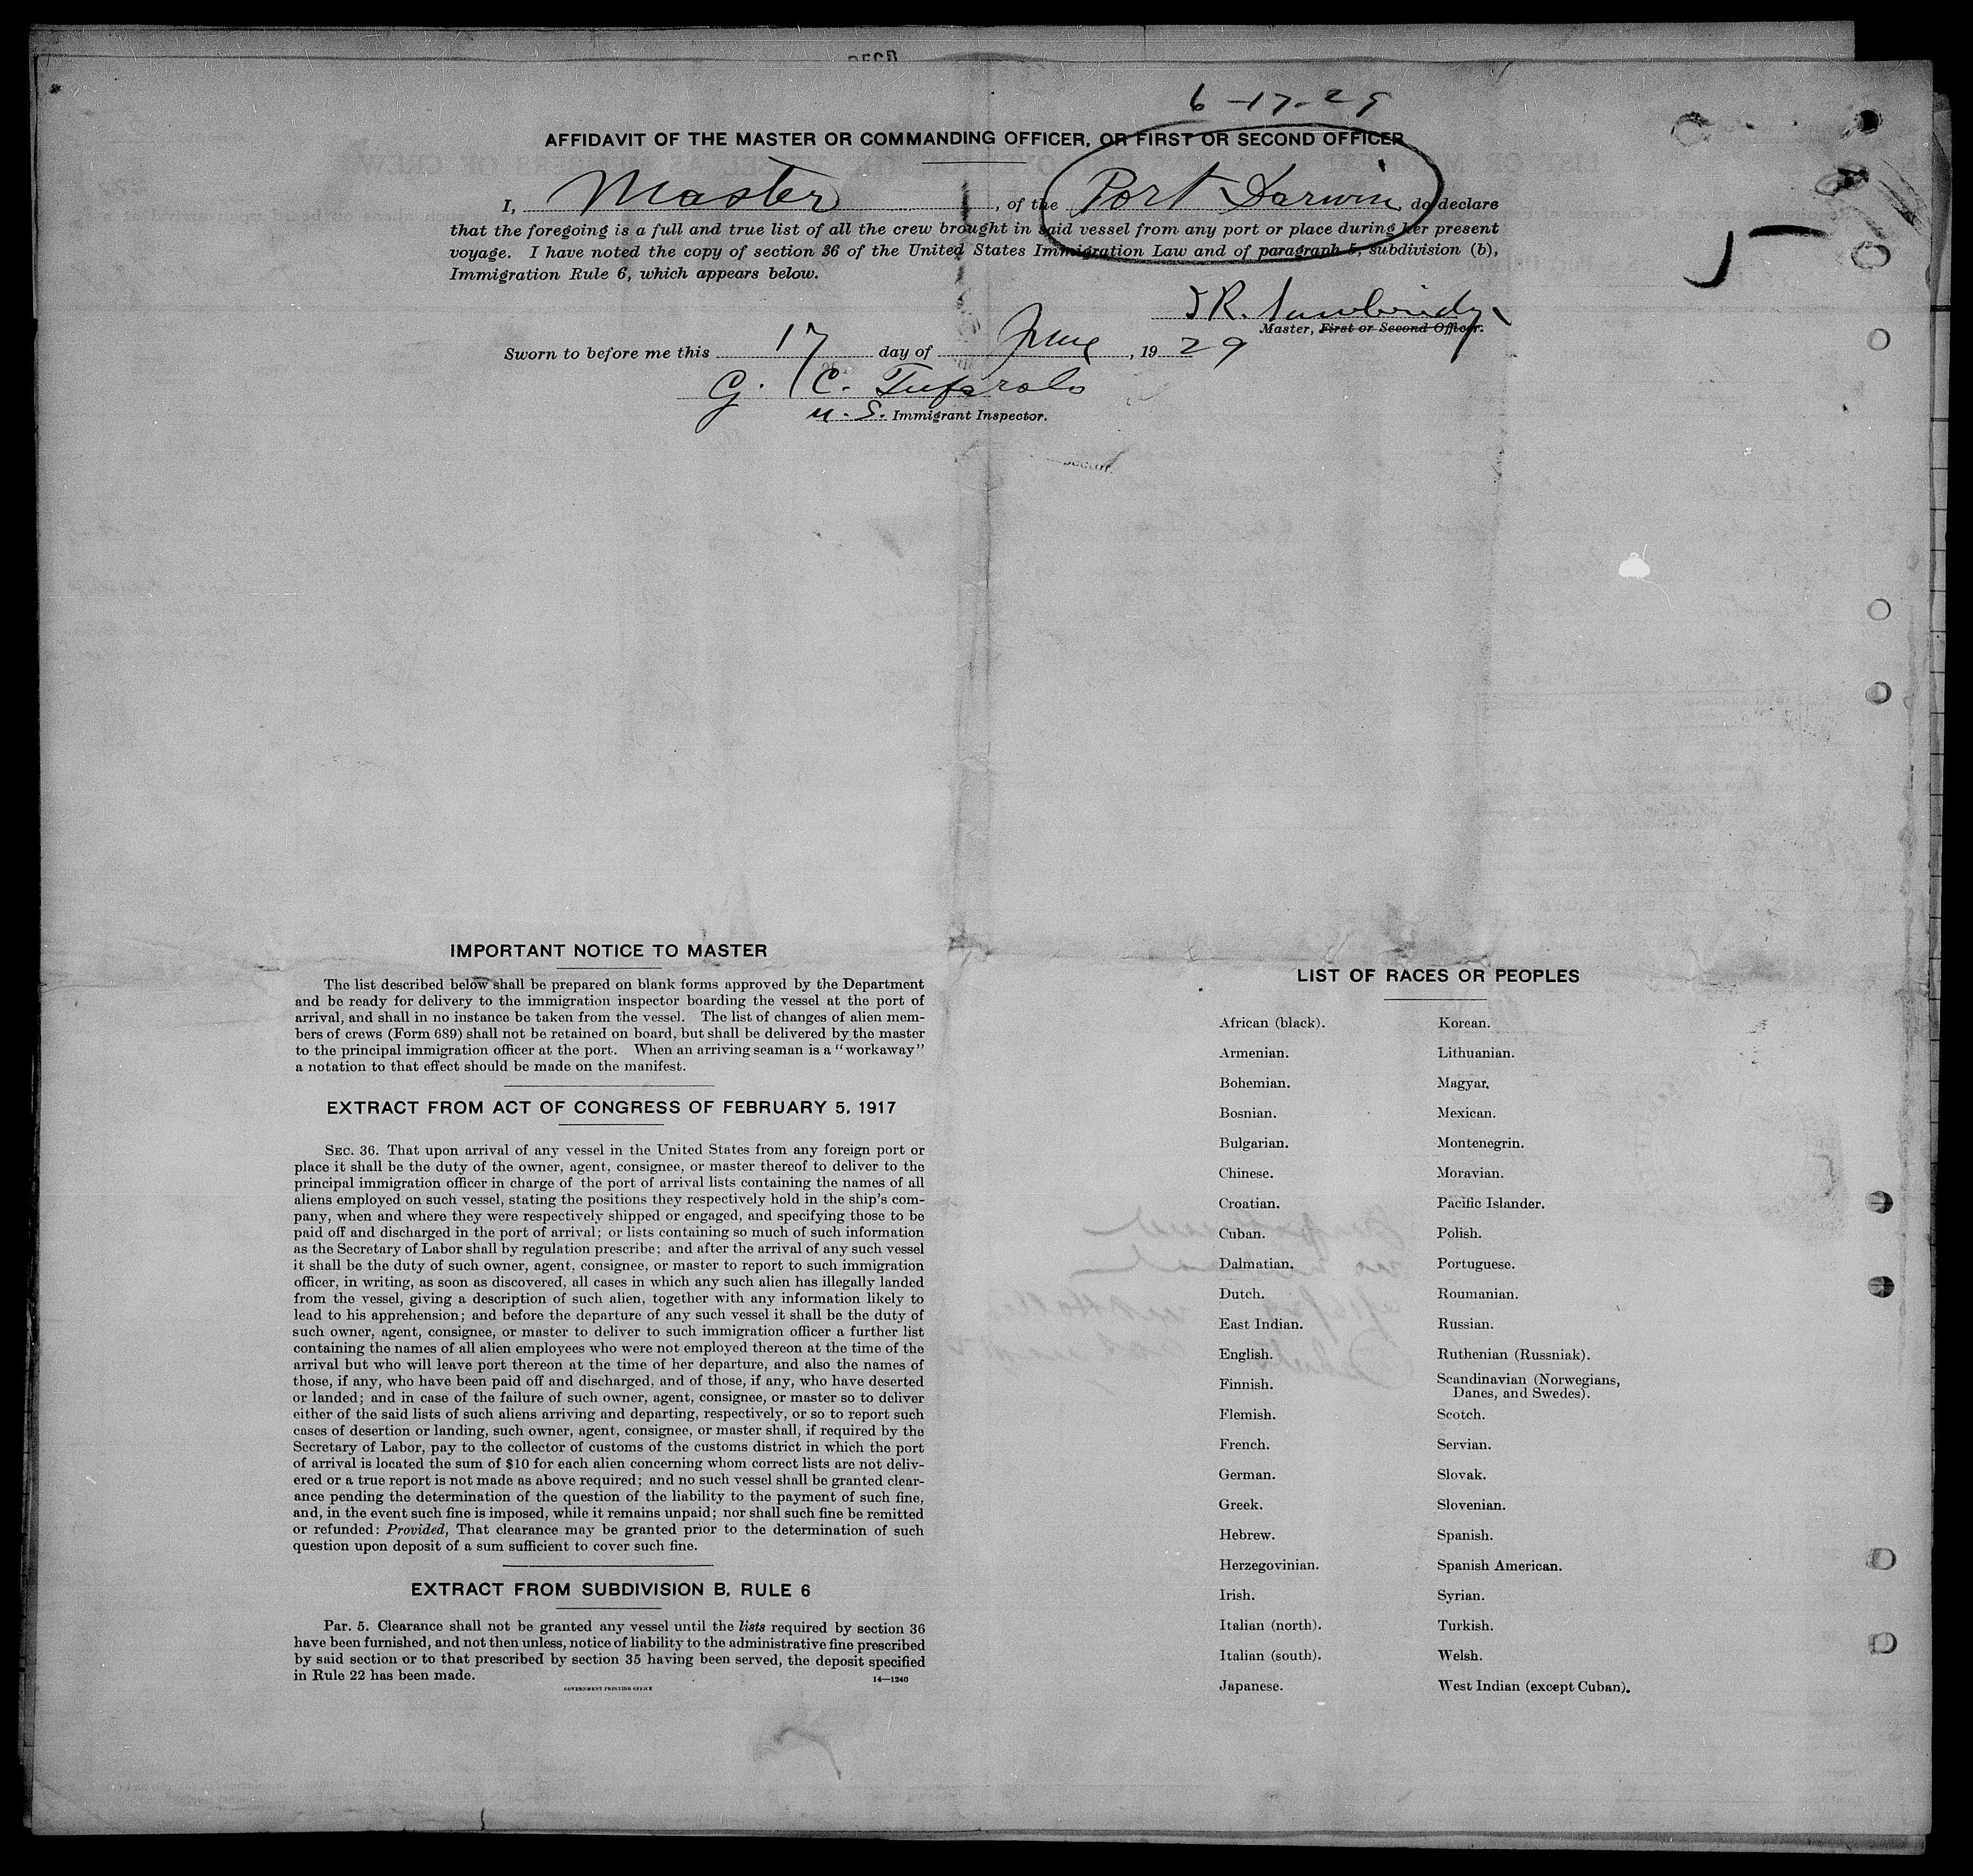 6-17-29
AFFIDAVIT OF THE MASTER OR COMMANDING OFFICER, OR FIRST OR SECOND OFFICER
I, Master, of the Port Darwin, do declare
that the foregoing is a full and true list of all the crew brought in said vessel from any port or place during her present
voyage. I have noted the copy of section 36 of the United States Immigration Law and of paragraph 5, subdivision (b),
Immigration Rule 6, which appears below.
Master, First or Second Officer.
Sworn to before me this 17 day of June, 1929
G. C.
U. S. Immigrant Inspector.
IMPORTANT NOTICE TO MASTER
The list described below shall be prepared on blank forms approved by the Department
and be ready for delivery to the immigration inspector boarding the vessel at the port of
arrival, and shall in no instance be taken from the vessel. The list of changes of alien mem-
bers of crews (Form 689) shall not be retained on board, but shall be delivered by the master
to the principal immigration officer at the port. When an arriving seaman is a "workaway"
a notation to that effect should be made on the manifest.
EXTRACT FROM ACT OF CONGRESS OF FEBRUARY 5, 1917
SEC. 36. That upon arrival of any vessel in the United States from any foreign port or
place it shall be the duty of the owner, agent, consignee, or master thereof to deliver to the
principal immigration officer in charge of the port of arrival lists containing the names of all
aliens employed on such vessel, stating the positions they respectively hold in the ship's com-
pany, when and where they were respectively shipped or engaged, and specifying those to be
paid off and discharged in the port of arrival; or lists containing so much of such information
as the Secretary of Labor shall by regulation prescribe; and after the arrival of any such vessel
it shall be the duty of such owner, agent, consignee, or master to report to such immigration
officer, in writing, as soon as discovered, all cases in which any such alien has illegally landed
from the vessel, giving a description of such alien, together with any information likely to
lead to his apprehension; and before the departure of any such vessel it shall be the duty of
such owner, agent, consignee, or master to deliver to such immigration officer a further list
containing the names of all alien employees who were not employed thereon at the time of the
arrival but who will leave port thereon at the time of her departure, and also the names of
those, if any, who have been paid off and discharged, and of those, if any, who have deserted
or landed; and in case of the failure of such owner, agent, consignee, or master so to deliver
either of the said lists of such aliens arriving and departing, respectively, or so to report such
cases of desertion or landing, such owner, agent, consignee, or master shall, if required by the
Secretary of Labor, pay to the collector of customs of the customs district in which the port
of arrival is located the sum of $10 for each alien concerning whom correct lists are not deliv-
ered or a true report is not made as above required; and no such vessel shall be granted clear-
ance pending the determination of the question of the liability to the payment of such fine,
and, in the event such fine is imposed, while it remains unpaid; nor shall such fine be remitted
or refunded: Provided, That clearance may be granted prior to the determination of such
question upon deposit of a sum sufficient to cover such fine.
EXTRACT FROM SUBDIVISION B, RULE 6
Par. 5. Clearance shall not be granted any vessel until the lists required by section 36
have been furnished, and not then unless, notice of liability to the administrative fine prescribed
by said section or to that prescribed by section 35 having been served, the deposit specified
in Rule 22 has been made.
14—1240
GOVERNMENT PRINTING OFFICE
LIST OF RACES OR PEOPLES
African (black).
Armenian.
Bohemian.
Bosnian.
Bulgarian.
Chinese.
Croatian.
Cuban.
Dalmatian.
Dutch.
East Indian.
English.
Finnish.
Flemish.
French.
German.
Greek.
Hebrew.
Herzegovinian.
Irish.
Italian (north).
Italian (south).
Japanese.
Korean.
Lithuanian.
Magyar.
Mexican.
Montenegrin.
Moravian.
Pacific Islander.
Polish.
Portuguese.
Roumanian.
Russian.
Ruthenian (Russniak).
Scandinavian (Norwegians,
Danes, and Swedes).
Scotch.
Servian.
Slovak.
Slovenian.
Spanish.
Spanish American.
Syrian.
Turkish.
Welsh.
West Indian (except Cuban).